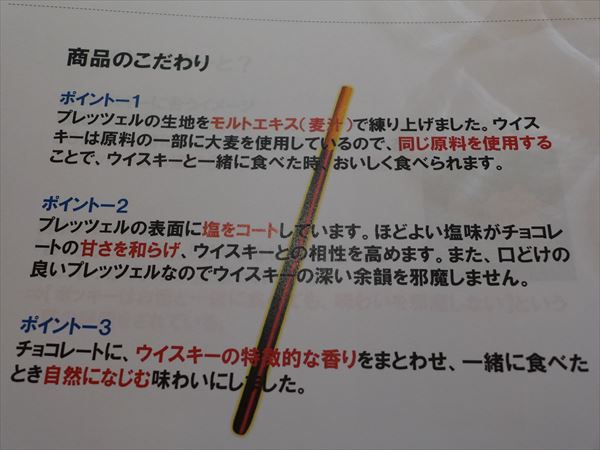 商品のこだわり
ポイントー1
プレッツェルの生地をモルトエキス（麦汁）で練り上げました。ウイス
キーは原料の一部に大麦を使用しているので、同じ原料を使用する
ことで、ウイスキーと一緒に食べた時、おいしく食べられます。
ポイントー2
プレッツェルの表面に塩をコートしています。ほどよい塩味がチョコレ
ートの甘さを和らげ、ウイスキーとの相性を高めます。また、口どけの
良いプレッツェルなのでウイスキーの深い余韻を邪魔しません。
ポイントー3
チョコレートに、ウイスキーの特徴的な香りをまとわせ、一緒に食べた
とき自然になじむ味わいにしました。